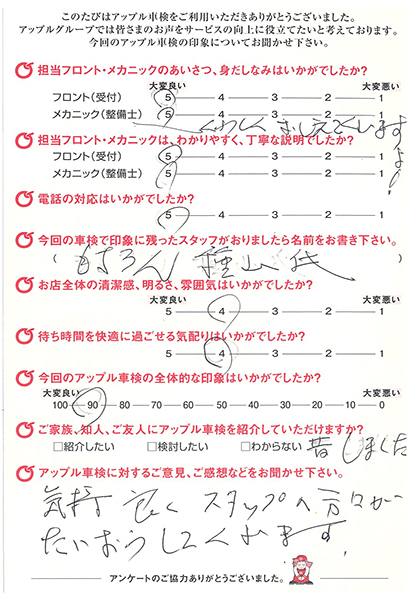 このたびはアップル車検をご利用いただきありがとうございました。
アップルグループでは皆さまのお声をサービスの向上に役立てたいと考えております。
今回のアップル車検の印象についてお聞かせ下さい。
担当フロント・メカニックのあいさつ、身だしなみはいかがでしたか?
大変良い 大変悪い
フロント(受付) 5 4 3 2 1
メカニック(整備士) 5 4 3 2 1
くわしくおしえています
よ!
担当フロント・メカニックは、わかりやすく、丁寧な説明でしたか?
フロント(受付) 5 4 3 2 1
メカニック(整備士) 5 4 3 2 1
電話の対応はいかがでしたか?
5 4 3 2 1
今回の車検で印象に残ったスタッフがおりましたら名前をお書き下さい。
(もちろん 種山氏)
お店全体の清潔感、明るさ、雰囲気はいかがでしたか?
大変良い 大変悪い
5 4 3 2 1
待ち時間を快適に過ごせる気配りはいかがでしたか?
5 4 3 2 1
今回のアップル車検の全体的な印象はいかがでしたか?
大変良い 大変悪い
100 90 80 70 60 50 40 30 20 10 0
ご家族、知人、ご友人にアップル車検を紹介していただけますか?
□紹介したい □検討したい □わからない 昔しました
アップル車検に対するご意見、ご感想などをお聞かせ下さい。
気持良く スタッフの方々が
たいおうしてくれます。
アンケートのご協力ありがとうございました。